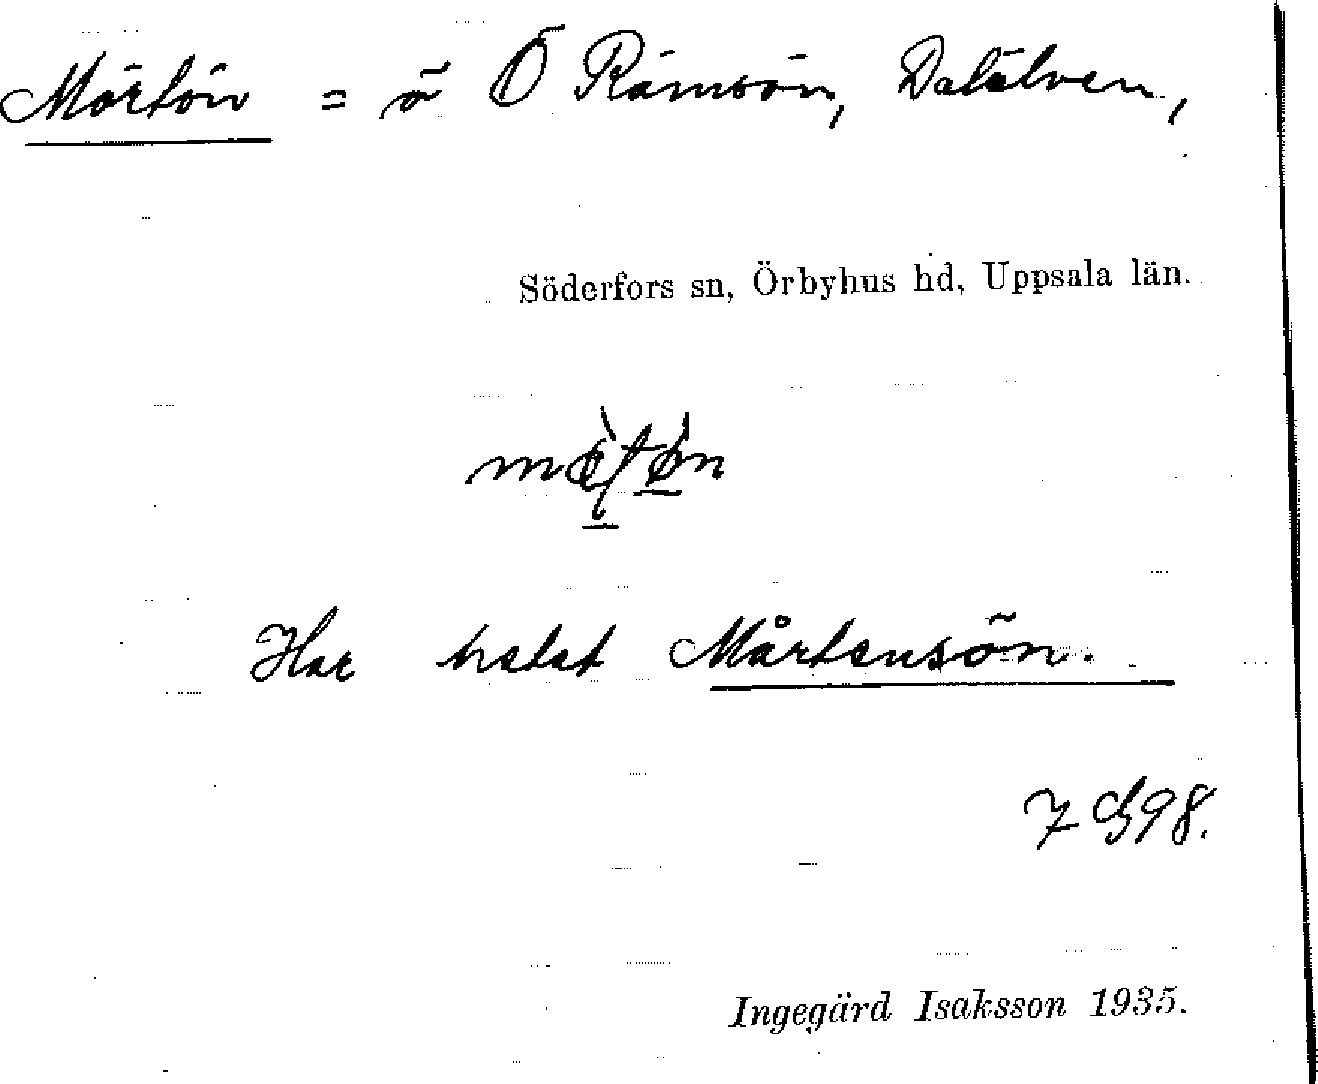 Mörtön = ö Ö Rämsön, Dalälven,
Söderfors sn, Örbyhus hd, Uppsala län.
Har hetat Mårtensön.
Ingegärd Isaksson 1935.